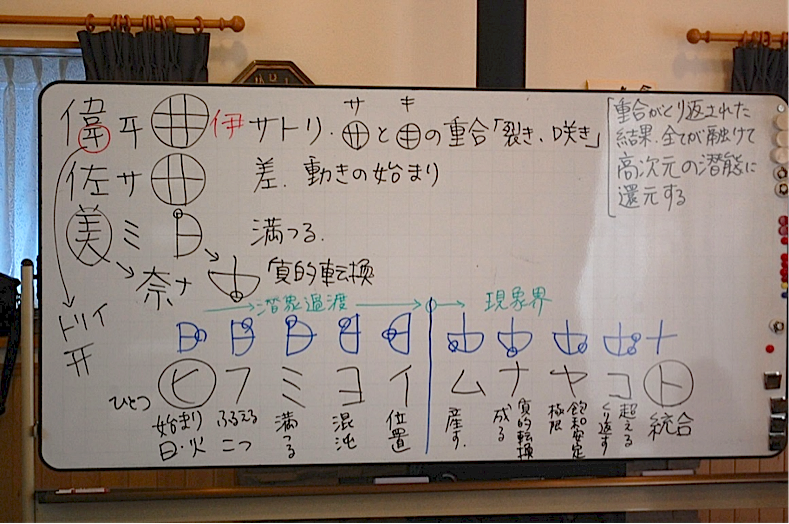 偉 ヰ 伊 サトリ. サと キの重合「裂き、咲き」
佐 サ 差. 動きの始まり
美 ミ 満つる.
奈 ナ 質的転換
トリイ
开
重合がくり返された
結果.全てが融けて
高次元の潜態に
還元する
潜象過渡
現象界
ヒ フ ミ ヨ イ ム ナ ヤ コ ト
ひとつ
始まり
日・火
ふるえる
二つ
満つる
混沌
位置
産す.
質的転換
成る
飽和安定
極限
超える
くり返す
統合